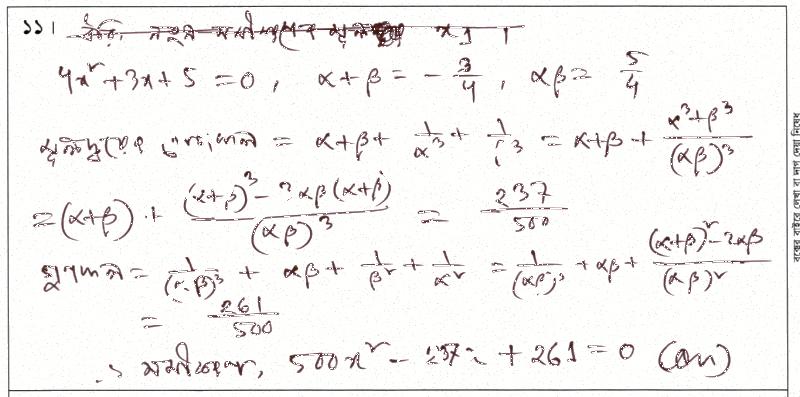 ১১।
4x² + 3x + 5 = 0, α+β = -3/4, αβ = 5/4
মূলদ্বয়ের যোগফল = α+β+ 1/α³ + 1/β³ = α+β + (α³+β³)/(αβ)³
= (α+β) + ((α+β)³ - 3αβ(α+β))/(αβ)³ = 237/500
গুণফল = 1/(αβ)³ + αβ + 1/β² + 1/α² = 1/(αβ)³ + αβ + ((α+β)² - 2αβ)/(αβ)²
= 261/500
∴ সমীকরণ, 500x² - 237x + 261 = 0 (Ans)
বক্সের বাইরে লেখা বা দাগ দেয়া নিষেধ